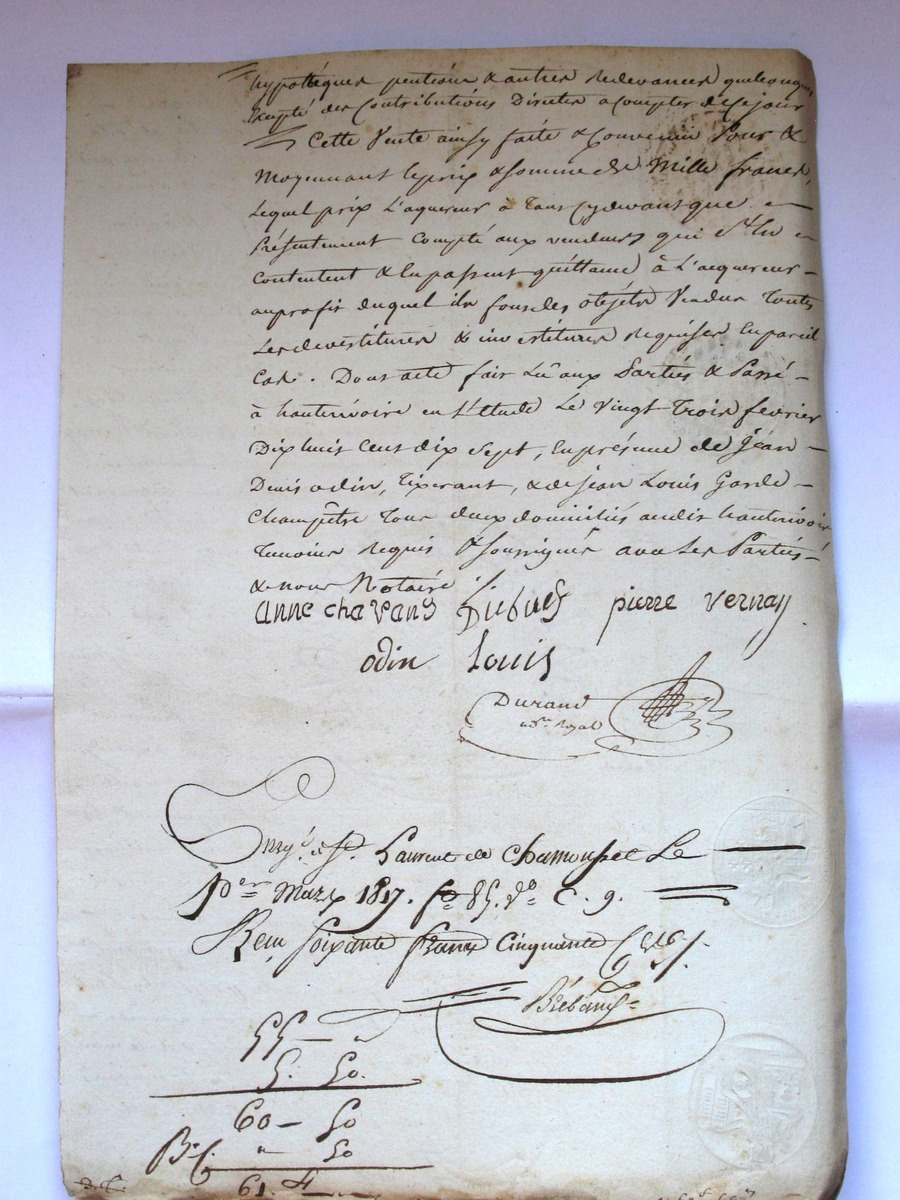 hypotéques pentions & autres redevances quelconques
Excepté des Contributions Directes a compter de Ce jour
Cette Vente ainsy faite & Convenue Pour &
Moyennant le prix & somme de Mille francs,
Lequel prix L'aquereur à tout cydevant que
Présentement Compté aux vendeurs qui s'en
Contentent & en passent quittance à L'acquereur
au profit duquel ils font des objets Vendus Toutes
Les devestitures & investitures Requises En pareil
Cas. Dont acte fait Lu aux Parties & Passé
à hauterivoire en L'étude Le Vingt Trois fevrier
Dix huit Cent dix Sept, En présence de Jean
Denis odin, Tixerant, & de Jean Louis Garde
Champêtre Tous deux domiciliés audit hauterivoire
Temoins Requis & soussignés avec Les Parties
& nous Notaire
anne chavans pierre vernay
odin Louis
Durand
no.re Royal
Enrg.é à St. Laurent de Chamousset Le
1.er Mars 1817. f.o 85. V.o C. 9.
Reçu soixante francs Cinquante C.es
55 —
5. 50
60 — 50
50
61.